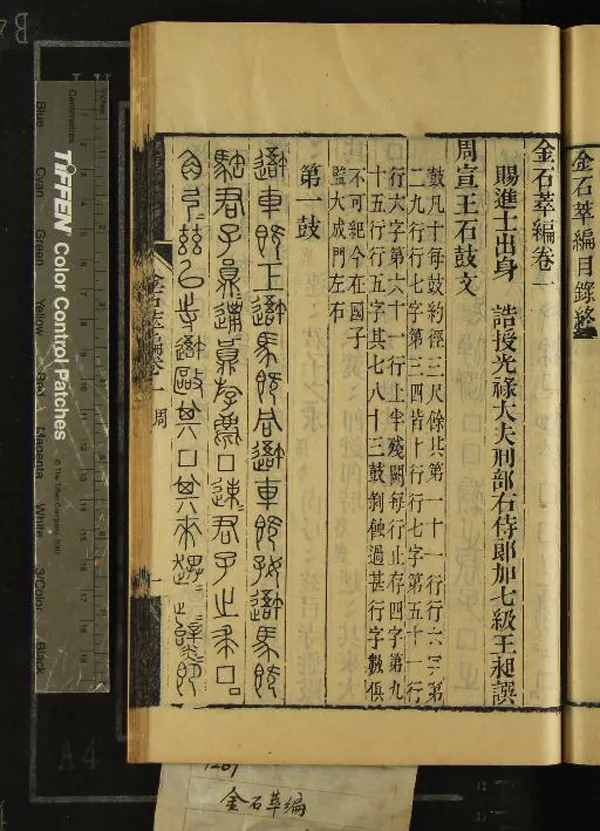 金石萃編目錄終
金石萃編卷一
賜進士出身 誥授光祿大夫刑部右侍郎加七級王昶譔
周宣王石鼓文
鼓凡十每鼓約徑三尺餘其第一十一行行六字第
二九行行七字第三四皆十行行七字第五十一行
行六字第六十一行上半殘闕每行止存四字第九
十五行行五字其七八十三鼓剝蝕過甚行字數俱
不可紀今在國子
監大成門左右
第一鼓
避車既工避馬既同避車既好避馬既
駐君子員邋員邋員斿麀□速君子之求□
弓茲以寺避敺其□其來趩
金石萃編卷一 周
一
TIFFEN Color Control Patches
© The Tiffen Company, 2007
Centimetres
Inches
Blue
Cyan
Green
Yellow
Red
Magenta
White
3/Color
Black
B
A4
1267
金石萃編